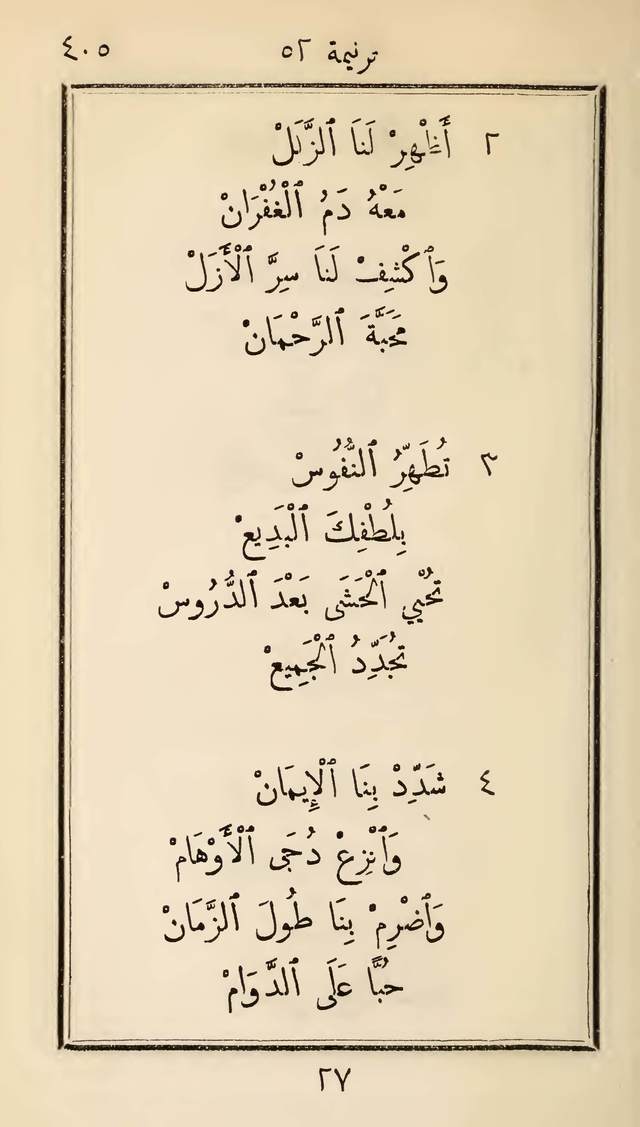 ترنيمة ٥٢ ٤٠٥
٢ أَظْهِرْ لَنَا ٱلزَّلَلْ
مَعْهُ دَمُ ٱلْغُفْرَانْ
وَٱكْشِفْ لَنَا سِرَّ ٱلْأَزَلْ
مَحَبَّةَ ٱلرَّحْمَانْ
٣ تُطَهِّرُ ٱلنُّفُوسْ
بِلُطْفِكَ ٱلْبَدِيعْ
تُحْيِي ٱلْحَشَى بَعْدَ ٱلدُّرُوسْ
تُجَدِّدُ ٱلْجَمِيعْ
٤ شَدِّدْ بِنَا ٱلْإِيمَانْ
وَٱنْزِعْ دُجَى ٱلْأَوْهَامْ
وَٱضْرِمْ بِنَا طُولَ ٱلزَّمَانْ
حُبًّا عَلَى ٱلدَّوَامْ
٢٧